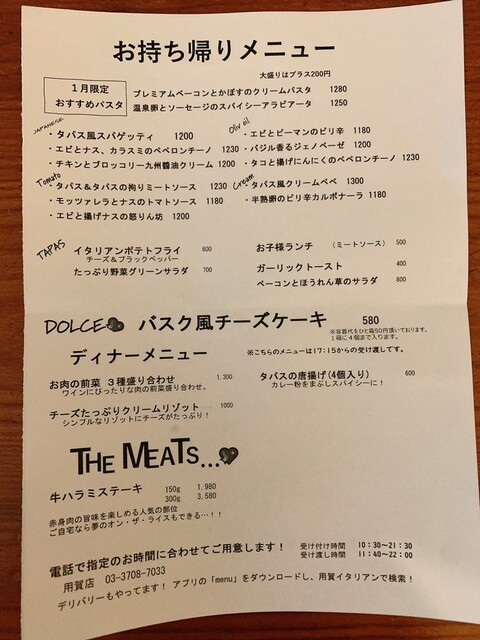 お持ち帰りメニュー
大盛りはプラス200円
1月限定
おすすめパスタ
プレミアムベーコンとかぼすのクリームパスタ 1280
温泉卵とソーセージのスパイシーアラビアータ 1250
JAPANESE
・タパス風スパゲッティ 1200
・エビとナス、カラスミのペペロンチーノ 1230
・チキンとブロッコリー九州醬油クリーム 1200
Olive oil
・エビとピーマンのピリ辛 1180
・バジル香るジェノベーゼ 1200
・タコと揚げにんにくのペペロンチーノ 1230
Tomato
・タパス&タパスの拘りミートソース 1230
・モッツァレラとナスのトマトソース 1180
・エビと揚げナスの怒りん坊 1200
Cream
・タパス風クリームベベ 1300
・半熟卵のピリ辛カルボナーラ 1180
TAPAS
イタリアンポテトフライ 600
チーズ&ブラックペッパー
たっぷり野菜グリーンサラダ 700
お子様ランチ (ミートソース) 500
ガーリックトースト 400
ベーコンとほうれん草のサラダ 800
DOLCE バスク風チーズケーキ 580
※容器代をひと箱50円頂いております。
1箱に4個まで入ります。
ディナーメニュー
※こちらのメニューは17:15からの受け渡しです。
お肉の前菜 3種盛り合わせ 1,300
ワインにぴったりな肉の前菜盛り合わせ。
チーズたっぷりクリームリゾット 1000
シンプルなリゾットにチーズがたっぷり!
タパスの唐揚げ(4個入り) 600
カレー粉をまぶしスパイシーに!
THE MEATS...
牛ハラミステーキ 150g 1,980
300g 3,580
赤身肉の旨味を楽しめる人気の部位
ご自宅なら夢のオン・ザ・ライスもできる…!!
電話で指定のお時間に合わせてご用意します!
受け付け時間 10:30~21:30
受け渡し時間 11:40~22:00
用賀店 03-3708-7033
デリバリーもやってます! アプリの「menu」をダウンロードし、用賀イタリアンで検索!